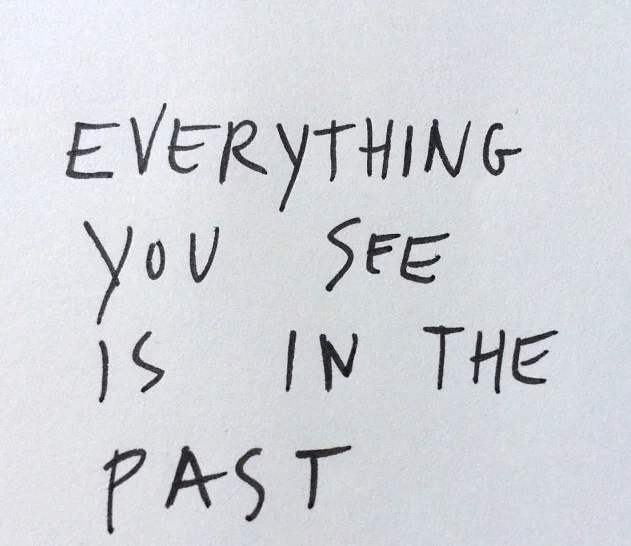 EVERYTHING
YOU SEE
IS IN THE
PAST